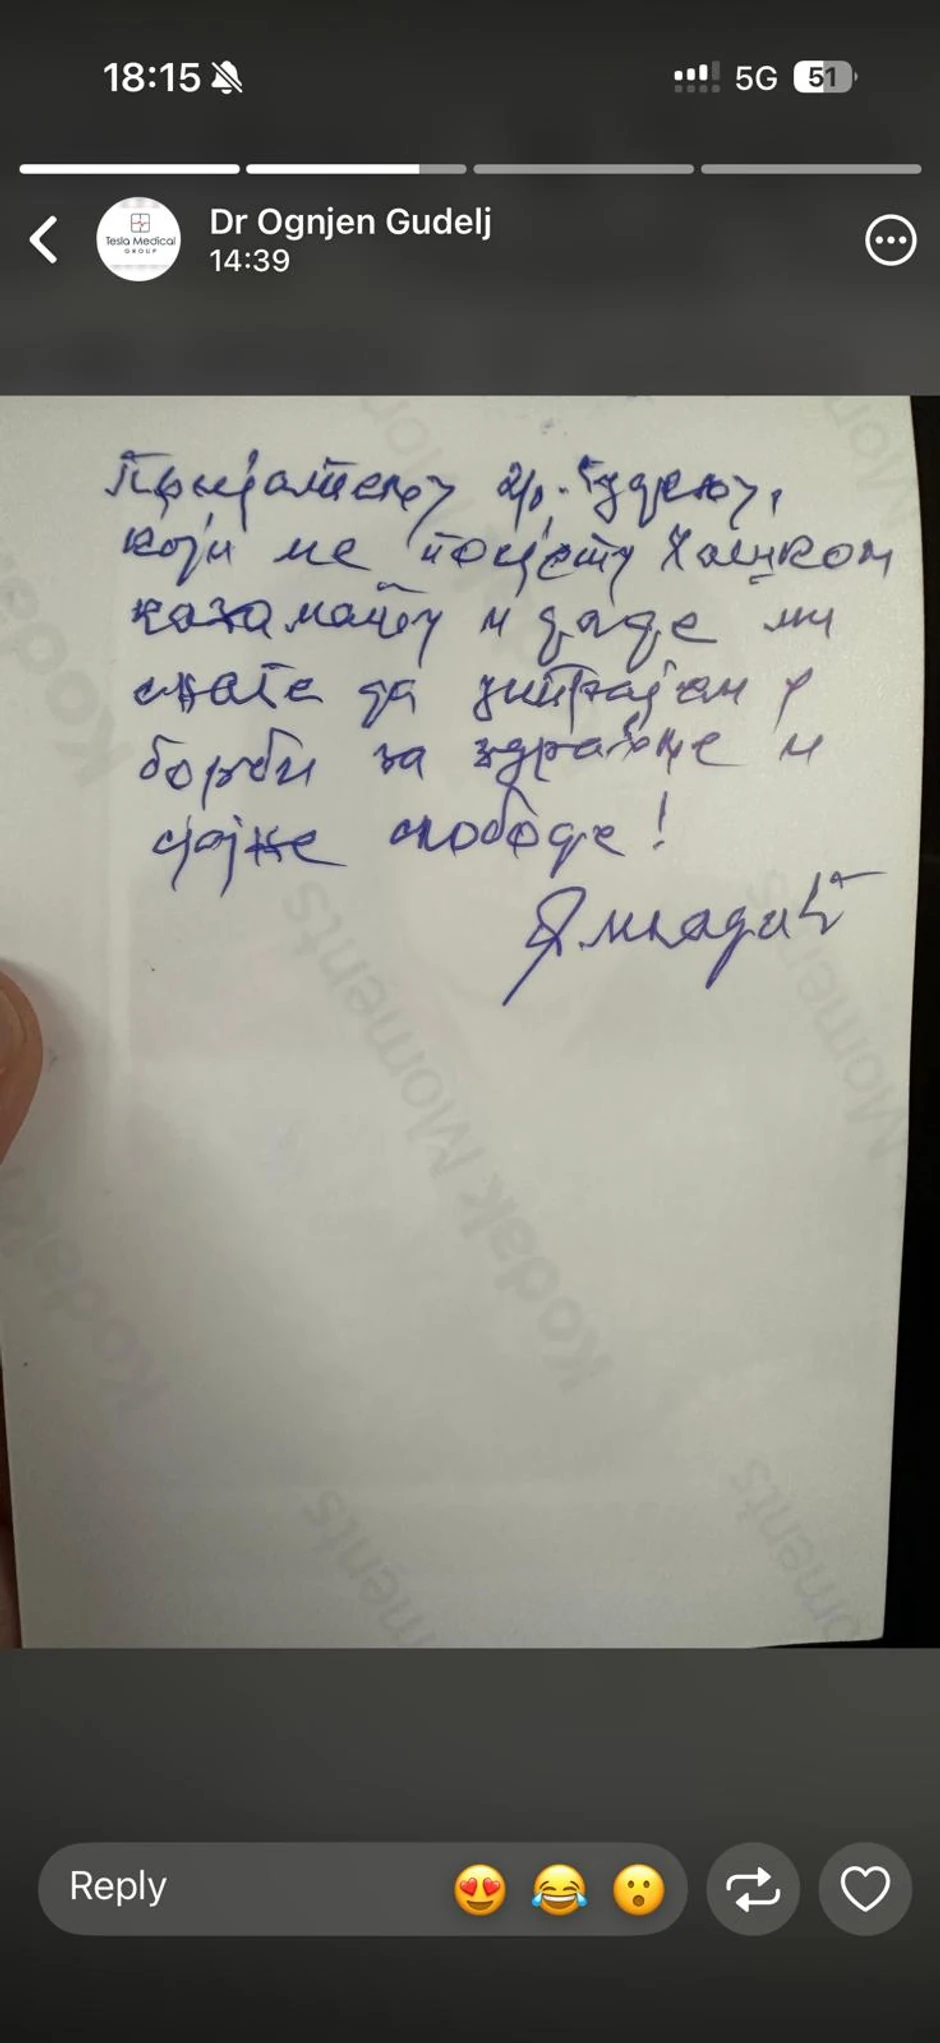 18:15
5G
51
Dr Ognjen Gudelj
14:39
Tesla Medical
GROUP
Пријатељу др. Гудељу,
који ме посјети Хашком
казамату и даде ми
снаге да истрајем у
борби за здравље и
слободе!
Р. Младић
Kodak Moments
Reply